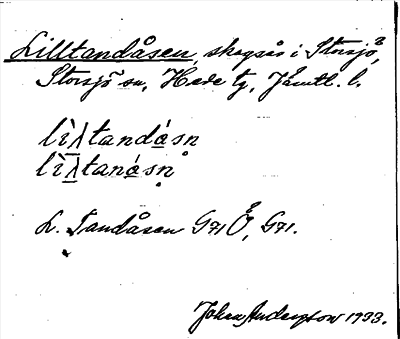 Lilltandåsen, skogsås i Storsjö,
Storsjö sn, Hede tg, Jämtl. l.
lìλtandåsn
lìλtanåsn
L. Tandåsen G71 Ö, G71.
Johan Anderson 1933.